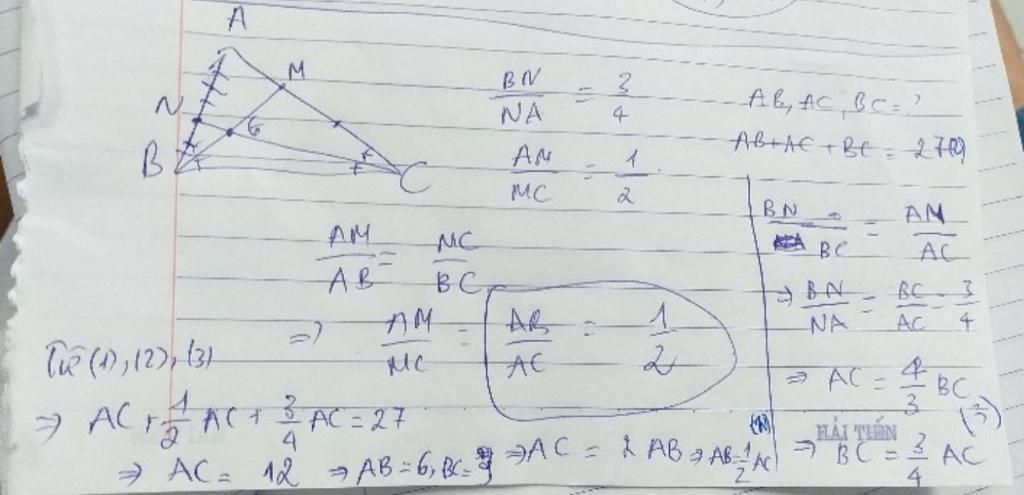 A
M
N
G
B
C
BN/NA = 3/4
AM/MC = 1/2
AB, AC, BC = ?
AB+AC+BC = 27(2)
AM/AB = MC/BC
⇒ AM/MC = AB/AC = 1/2
BN/BC = AM/AC
⇒ BN/NA = BC/AC = 3/4
⇒ AC = 4/3 BC
⇒ BC = 3/4 AC (3)
Từ (1), (2), (3)
⇒ AC + 1/2 AC + 3/4 AC = 27
⇒ AC = 12 ⇒ AB = 6, BC = 9
⇒ AC = 2 AB ⇒ AB = 1/2 AC (1)
HẢI TIẾN